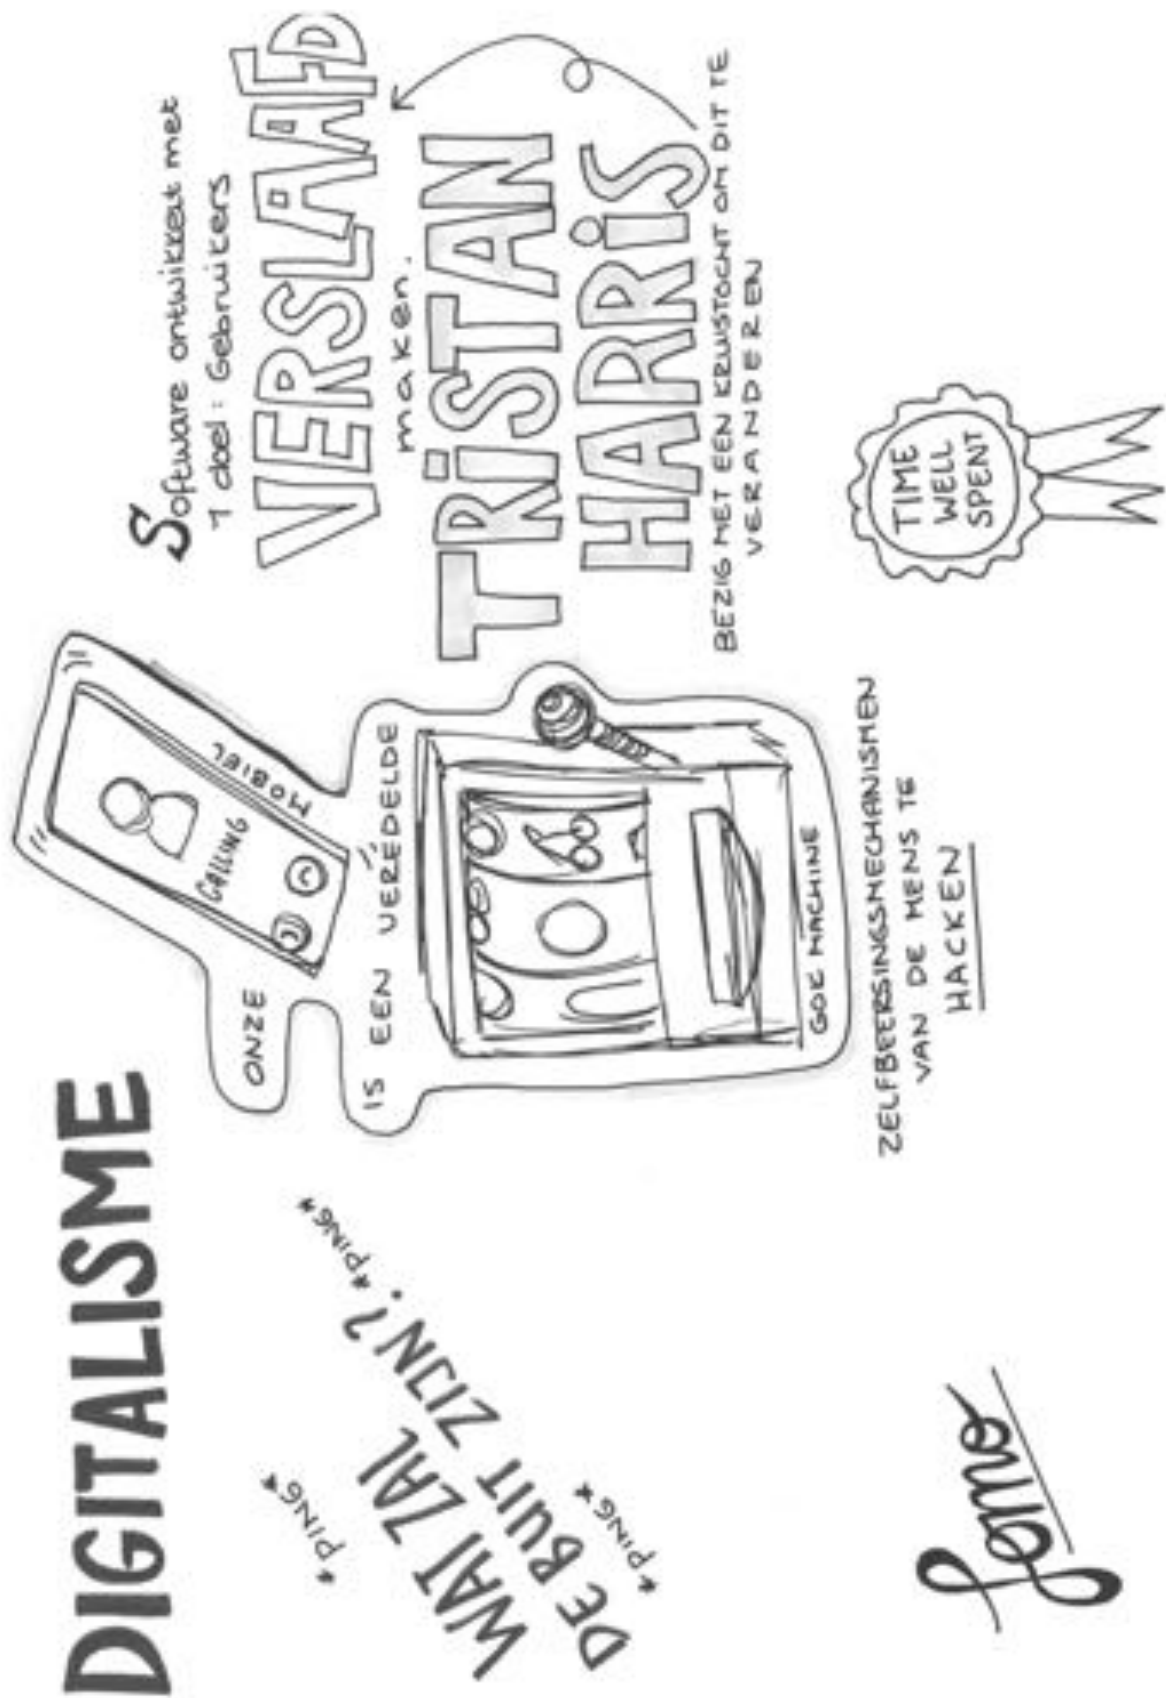 DIGITALISME
*PING*
WAT ZAL
DE BUIT ZIJN?
*PING*
*PING*
ONZE
CALLING
MOBIEL
IS EEN VEREDELDE
GOK MACHINE
ZELFBEERSINGSMECHANISMEN
VAN DE MENS TE
HACKEN
Software ontwikkelt met
1 doel: Gebruikers
VERSLAAFD
maken.
TRiSTAN
HARRiS
BEZIG MET EEN KRUISTOCHT OM DIT TE
VERANDEREN
TIME
WELL
SPENT